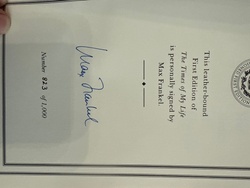 This leather-bound
First Edition of
The Times of My Life
is personally signed by
Max Frankel.
Max Frankel
Number 823 of 1,000